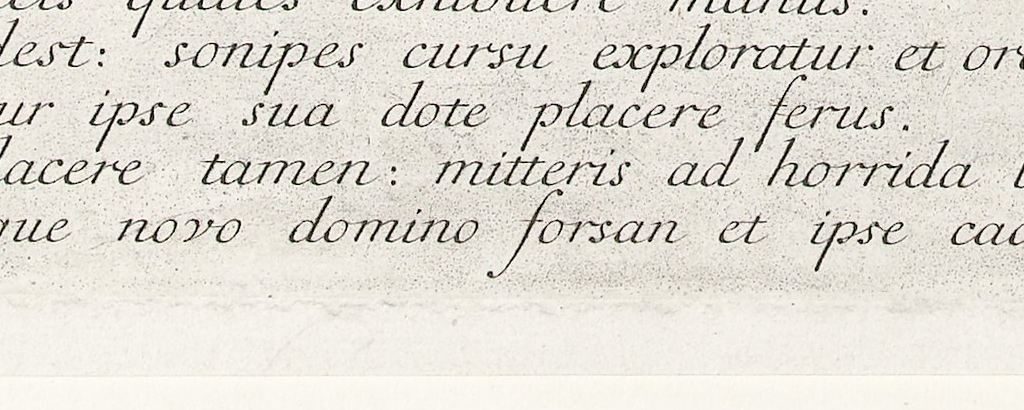 quales exhibuere manus.
dest: sonipes cursu exploratur et
ur ipse sua dote placere ferus.
lacere tamen: mitteris ad horrida
que novo domino forsan et ipse